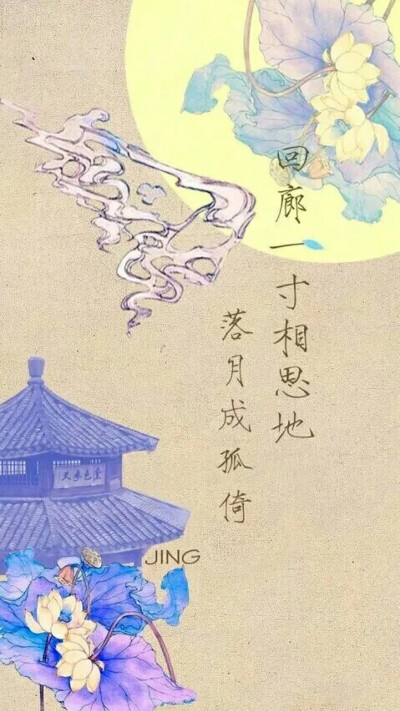 回廊一寸相思地
落月成孤倚
JING